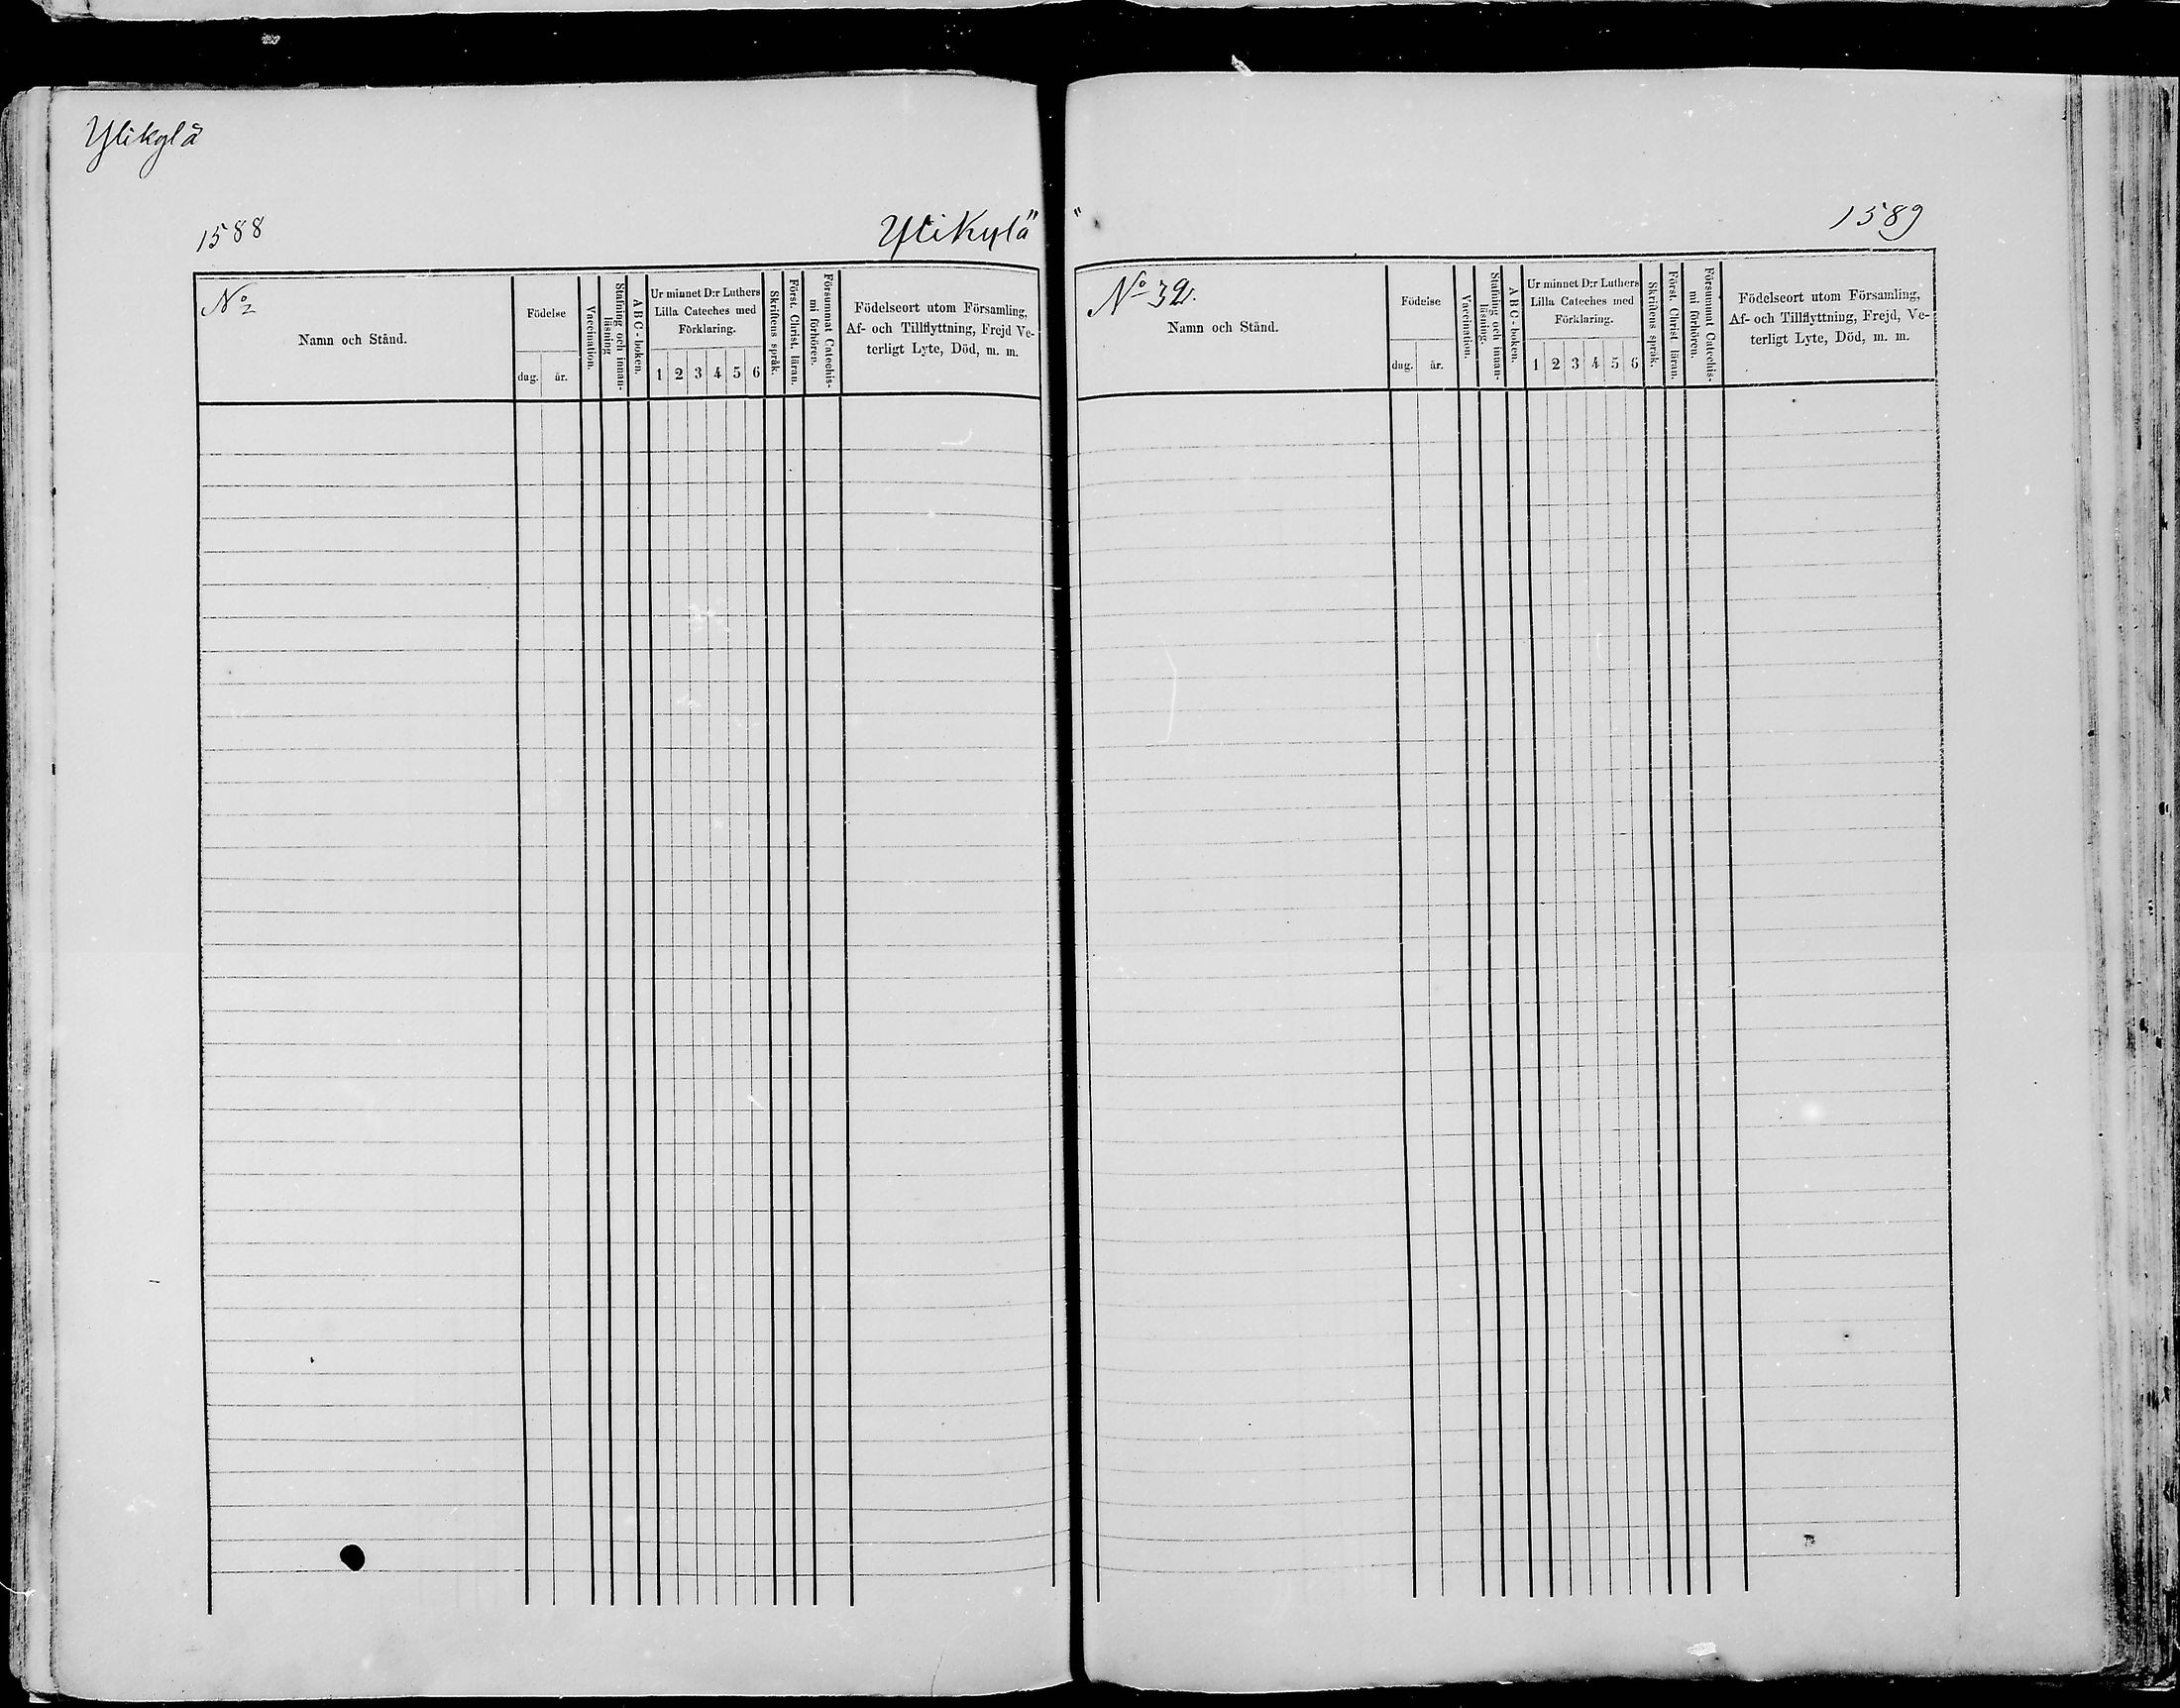 Ylikylä
1588
Ylikylä
No 2
Namn och Stånd.
Födelse
dag.
år.
Vaccination.
Stafning och innan-
läsning
A B C - boken.
Ur minnet D:r Luthers
Lilla Cateches med
Förklaring.
1 2 3 4 5 6
Skriftens språk.
Först. Christ. läran.
Försummat Catechis-
mi förhören.
Födelseort utom Församling,
Af- och Tillflyttning, Frejd Ve-
terligt Lyte, Död, m. m.
1589
No 32.
Namn och Stånd.
Födelse
dag.
år.
Vaccination.
Stafning och innan-
läsning.
A B C - boken.
Ur minnet D:r Luthers
Lilla Cateches med
Förklaring.
1 2 3 4 5 6
Skriftens språk.
Först. Christ. läran.
Försummat Catechis-
mi förhören.
Födelseort utom Församling,
Af- och Tillflyttning, Frejd, Ve-
terligt Lyte, Död, m. m.